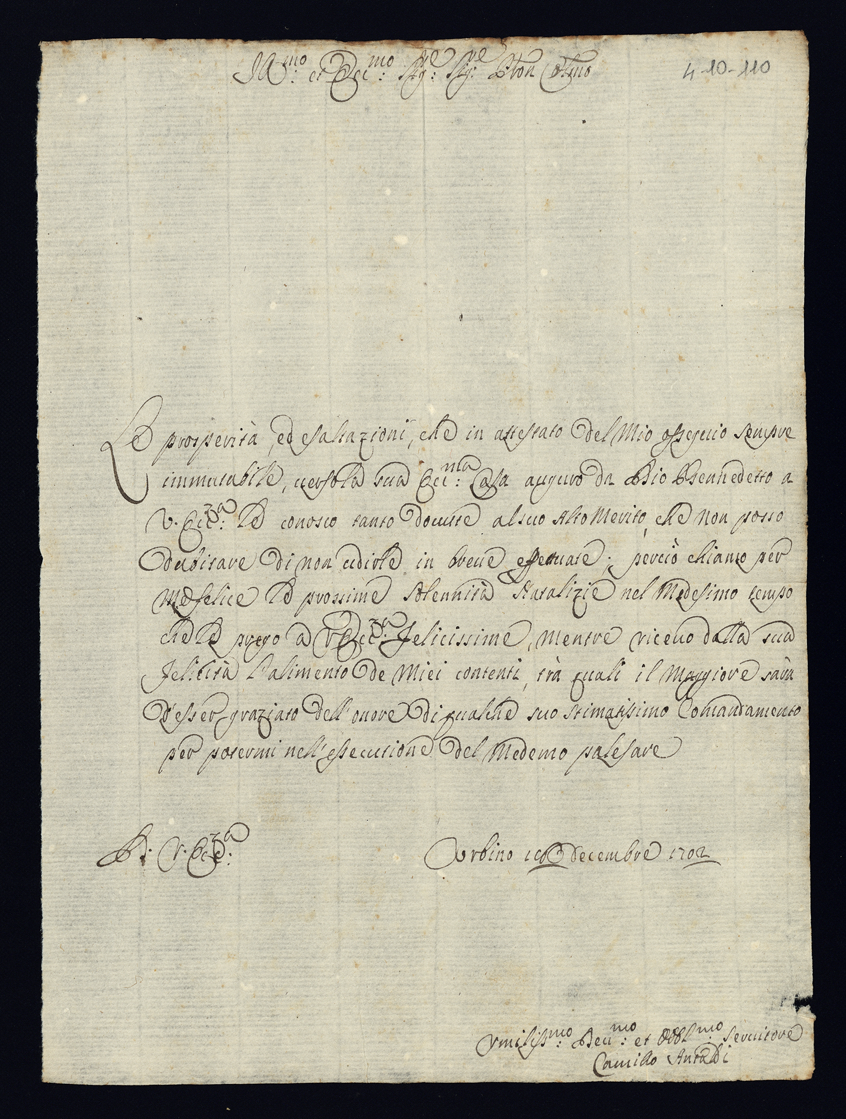 Ill:mo et Ecc:mo Sig:re Sig:re Pron Col:mo
4-10-110
Le prosperità, ed esaltazioni, che in attestato del Mio ossequio sempre
immutabile, verso la sua Ecc:ma Casa auguro da Dio Bennedetto a
V. Ecc:za le conosco tanto dovute al suo Alto Merito, che non posso
dubitare di non udirle in breve effettuate; perciò chiamo per
Me felice le prossime solennità Natalizie nel Medesimo tempo
che le prego a V. Ecc:za felicissime, mentre ricevo dalla sua
felicità l'alimento de Miei contenti, trà quali il Maggiore sarà
d'esser graziato dell'onore di qualche suo stimatissimo Comandamento
per potermi nell'essecutione del Medemo palesare
Di V. Ecc:za
Urbino Decembre 1702
Vmiliss:mo Deu:mo et Obbl:mo Servitore
Camillo Antaldi